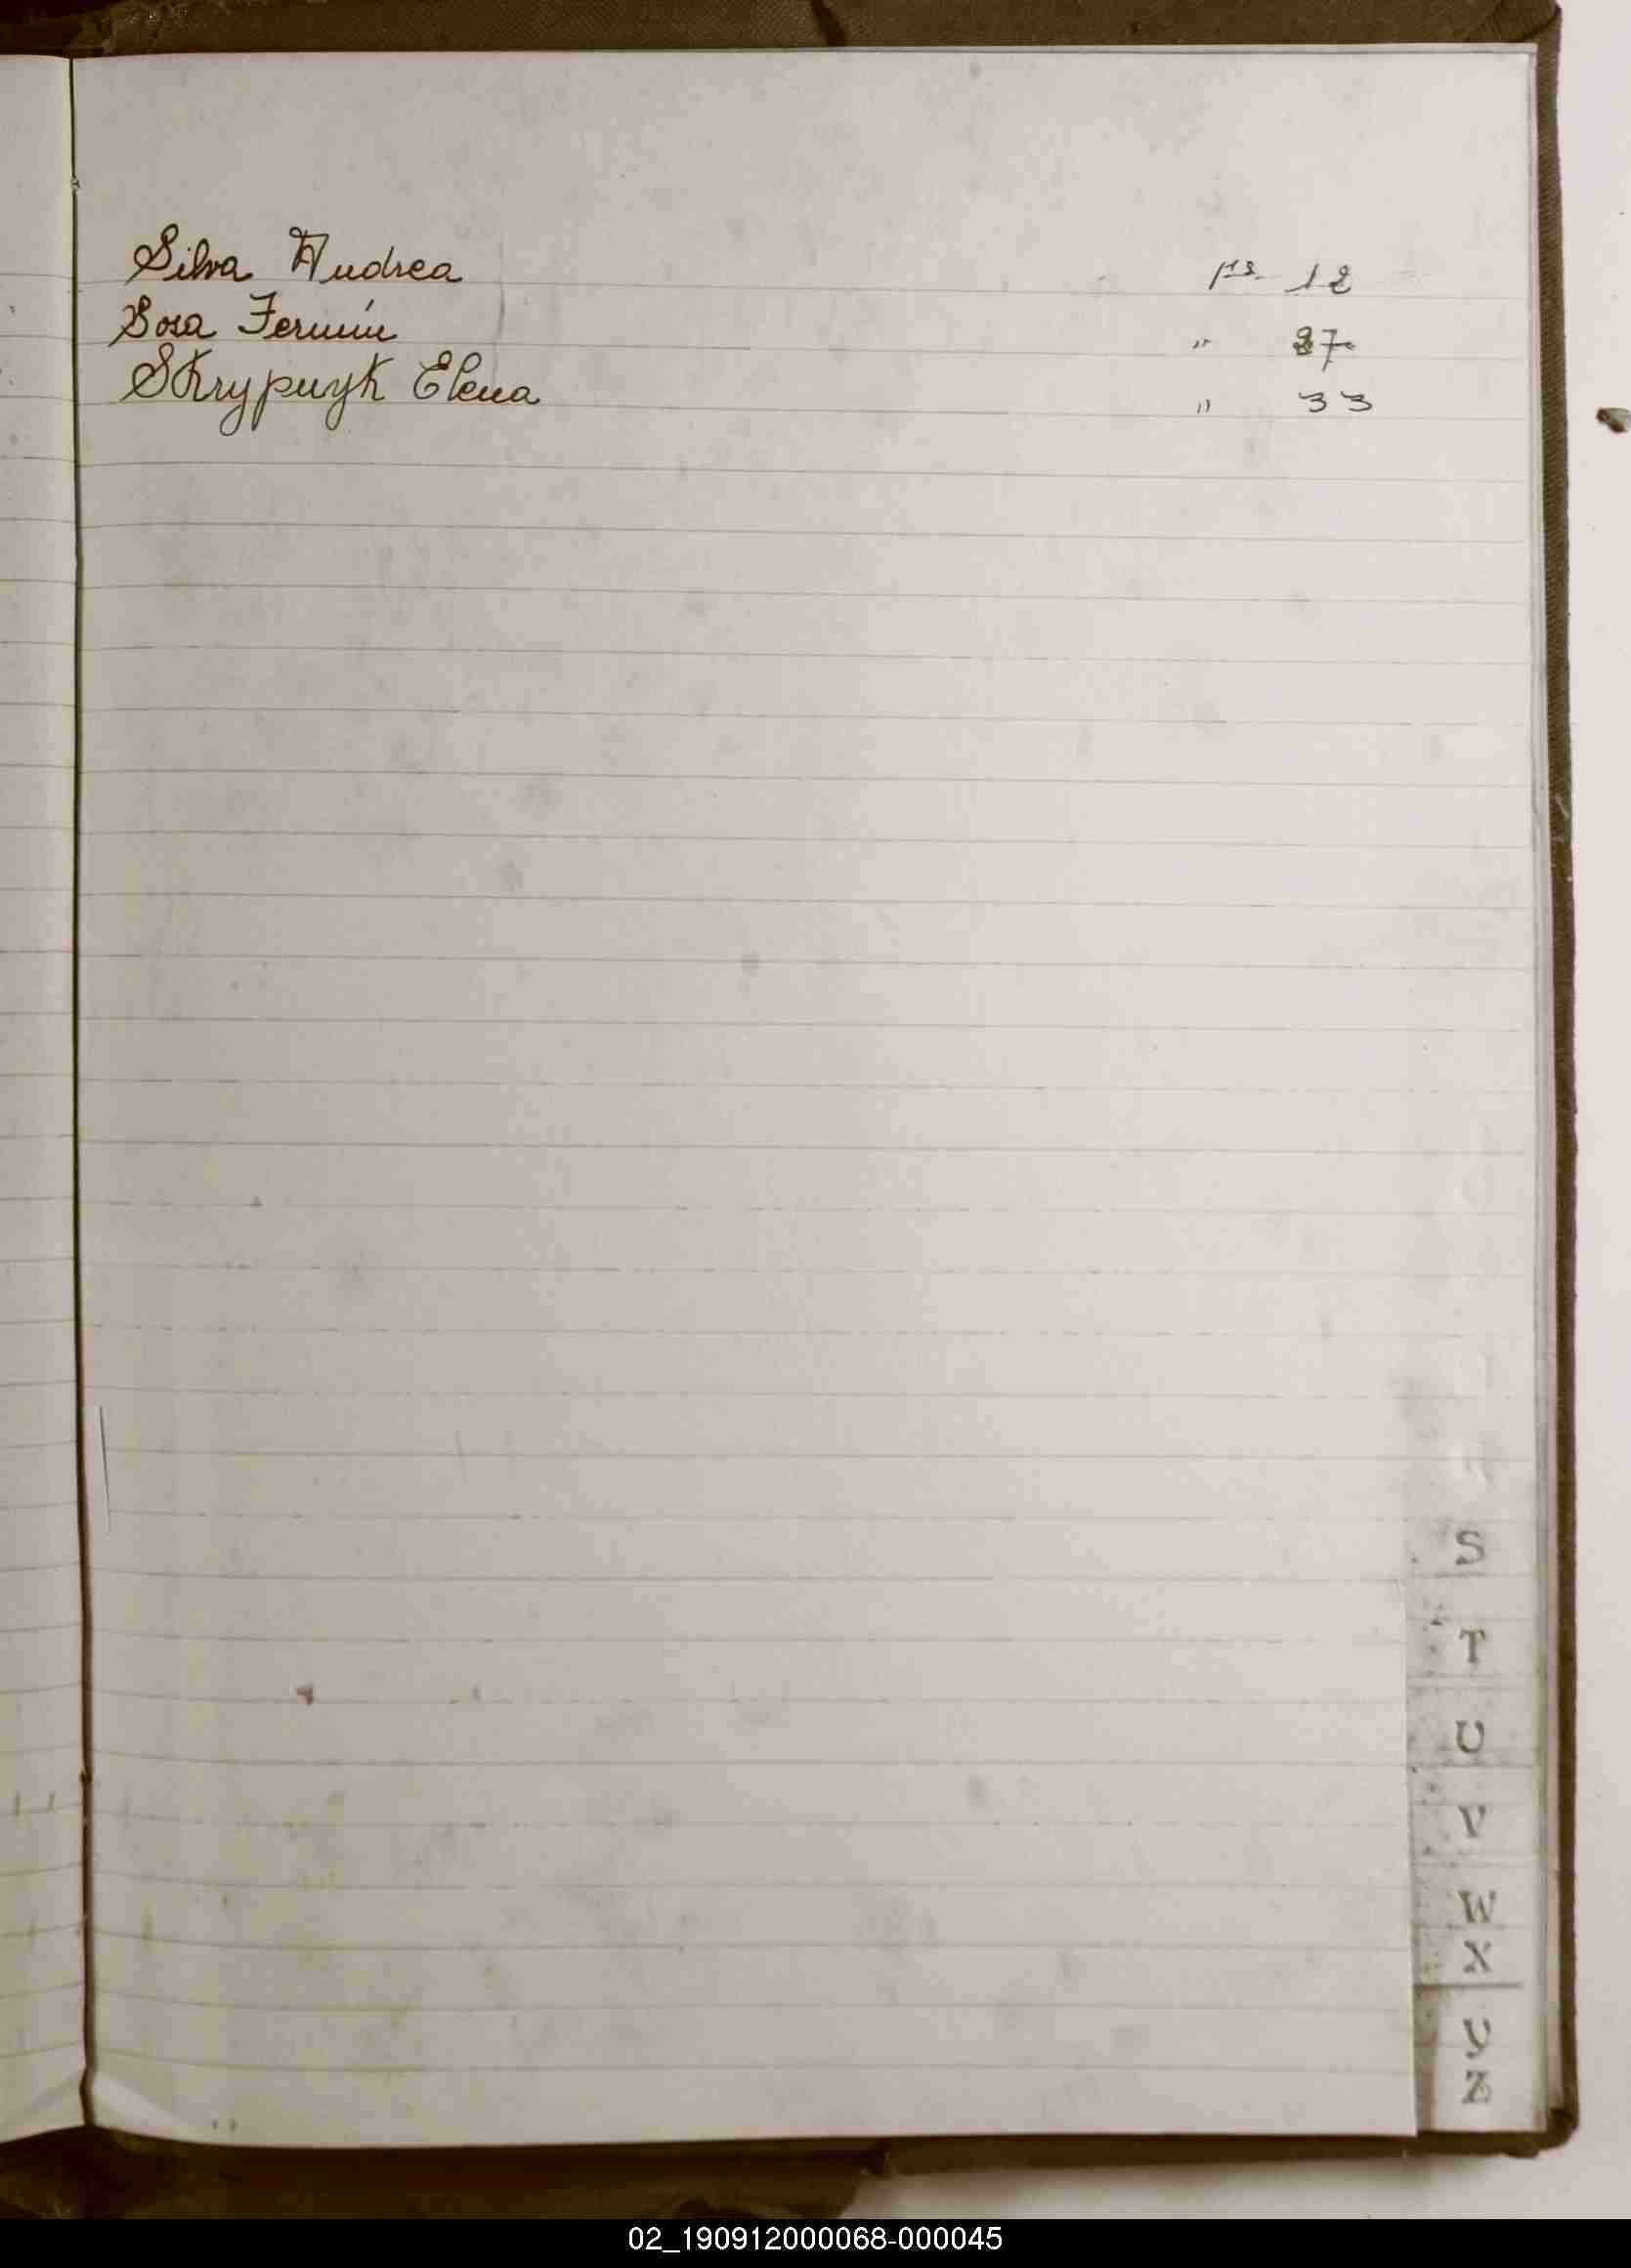 Silva Andrea 12
Sosa Fermín " 27
Skrypnyk Elena " 33
S
T
U
V
W
X
Y
Z
02_190912000068-000045